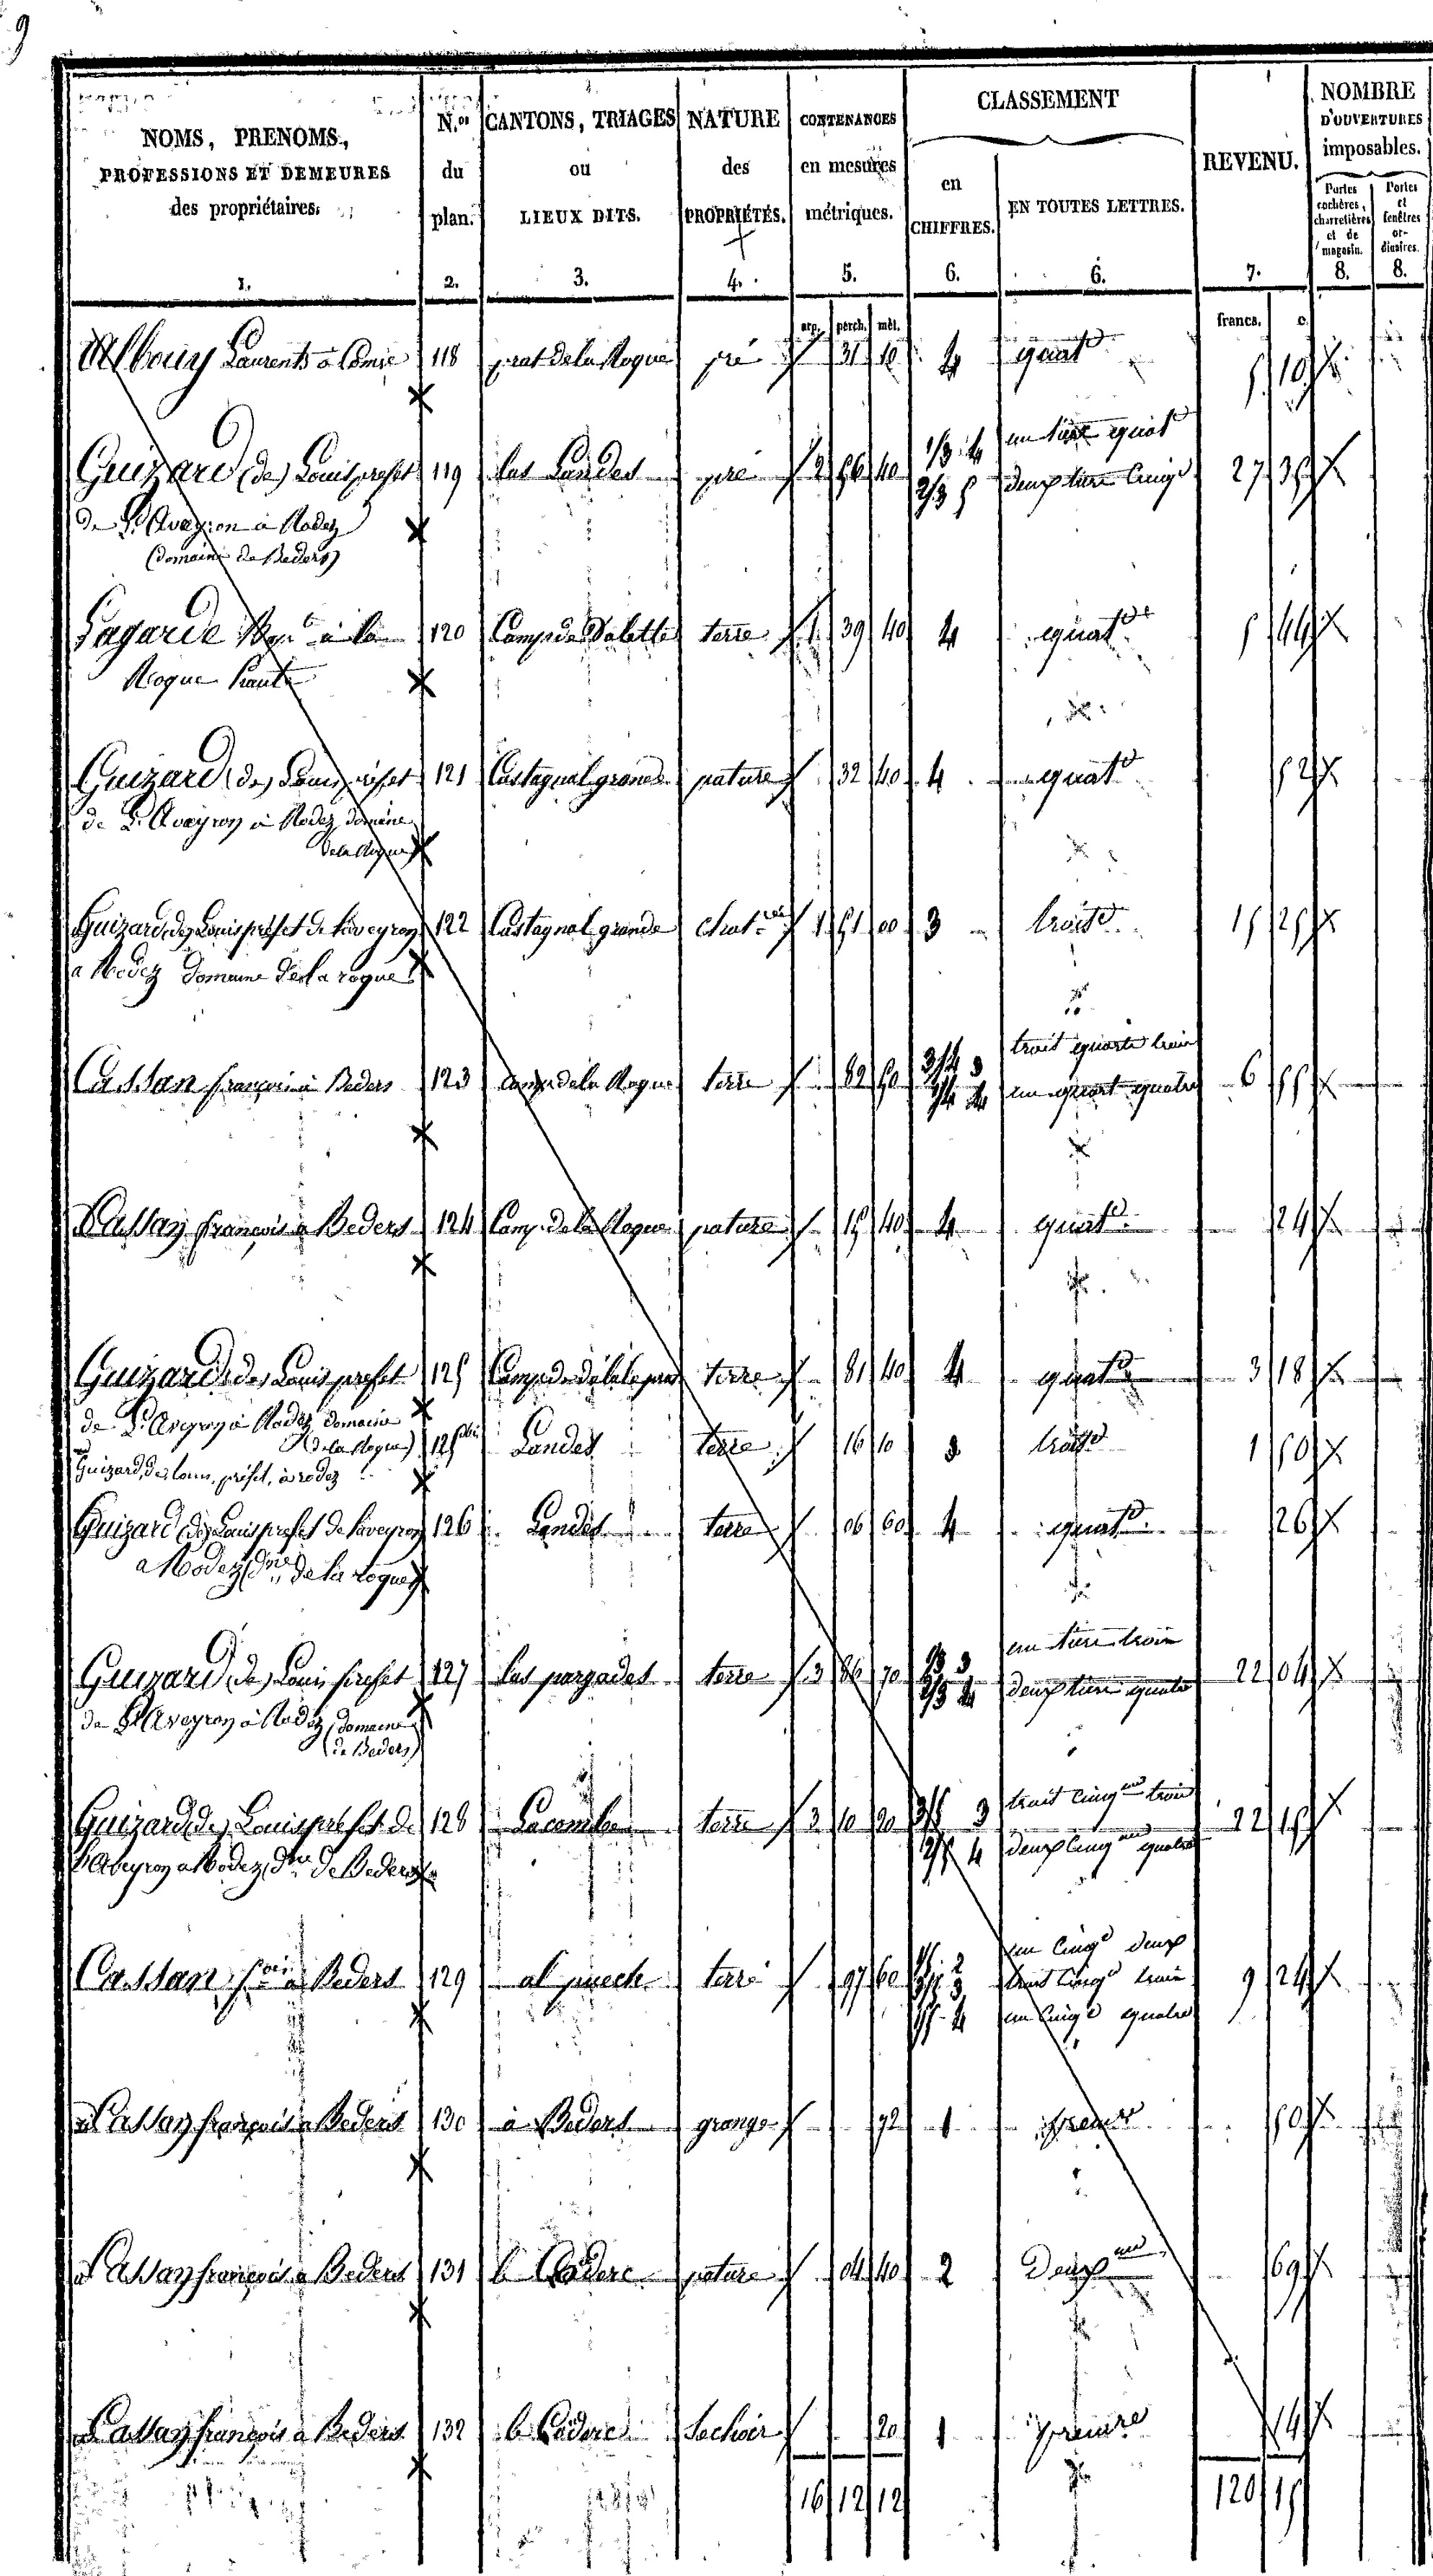 9
NOMS, PRENOMS, PROFESSIONS ET DEMEURES des propriétaires. 1.
N.os du plan. 2.
CANTONS, TRIAGES ou LIEUX DITS. 3.
NATURE des PROPRIÉTÉS. 4.
CONTENANCES en mesures métriques. 5.
CLASSEMENT
en CHIFFRES. 6.
EN TOUTES LETTRES. 6.
REVENU. 7.
NOMBRE D'OUVERTURES imposables.
Portes cochères, charretières et de magasin. 8.
Portes et fenêtres ordinaires. 8.
arp. perch. mèt. francs. c.
Albouy Laurents à 118 prat de la Roque pré 31 10 4 quat.e 5 19
Guizard (de) Louis préfet 119 las Landes pré 2 56 40 1/3 4 un tiers quat.e 27 35
2/3 5 deux tiers cinq.e
de L'Aveyron à Rodez
(domaine de Beders)
Lagarde à la 120 Camp de Valette terre 1 39 40 4 quat.e 5 44
Roque haute
Guizard (de) Louis préfet 121 Castagnal grande pature 32 40 4 quat.e 52
de L'Aveyron à Rodez domaine
de la Roque)
Guizard (de) Louis préfet de l'aveyron 122 Castagnal grande chat.raie 1 51 00 3 trois.e 15 25
a Rodez domaine de la roque
Cassan françois à Beders 123 camp de la Roque terre 82 50 3/4 3 trois quarts trois 6 55
1/4 4 un quart quatre
Cassan françois à Beders 124 Camp de la Roque pature 15 40 4 quat.e 24
Guizard (de) Louis préfet 125 terre 81 40 4 quat.e 3 18
de L'Aveyron à Rodez domaine
(de la Roque) 125 bis Landes terre 16 10 3 trois.e 1 50
Guizard, de, louis, préfet, à rodez
Guizard (de) Louis préfet de l'aveyron 126 Landes terre 06 60 4 quat.e 26
a Rodez (d.ne de la roque)
Guizard (de) Louis préfet 127 las pargades terre 3 86 70 1/3 3 un tiers trois 22 04
2/3 4 deux tiers quatre
de L'Aveyron à Rodez, domaine
(de Beders)
Guizard (de) Louis préfet de 128 Lacombe terre 3 10 20 3/5 3 trois cinq.mes trois 22 15
2/5 4 deux cinq.mes quatre
l'Aveyron a Rodez, d.ne de Beders
Cassan f.ois à Beders 129 al puech terre 97 60 1/5 2 un cinq.e deux 9 24
3/5 3 trois cinq.e trois
1/5 4 un cinq.e quatre
Cassan françois à Beders 130 à Beders grange 92 1 prem.re 50
Cassan françois à Beders 131 le Cäderc pature 04 40 2 Deux.me 69
Cassan françois à Beders 132 le Caderc Sechoir 20 1 prem.re 14
16 12 12 120 15